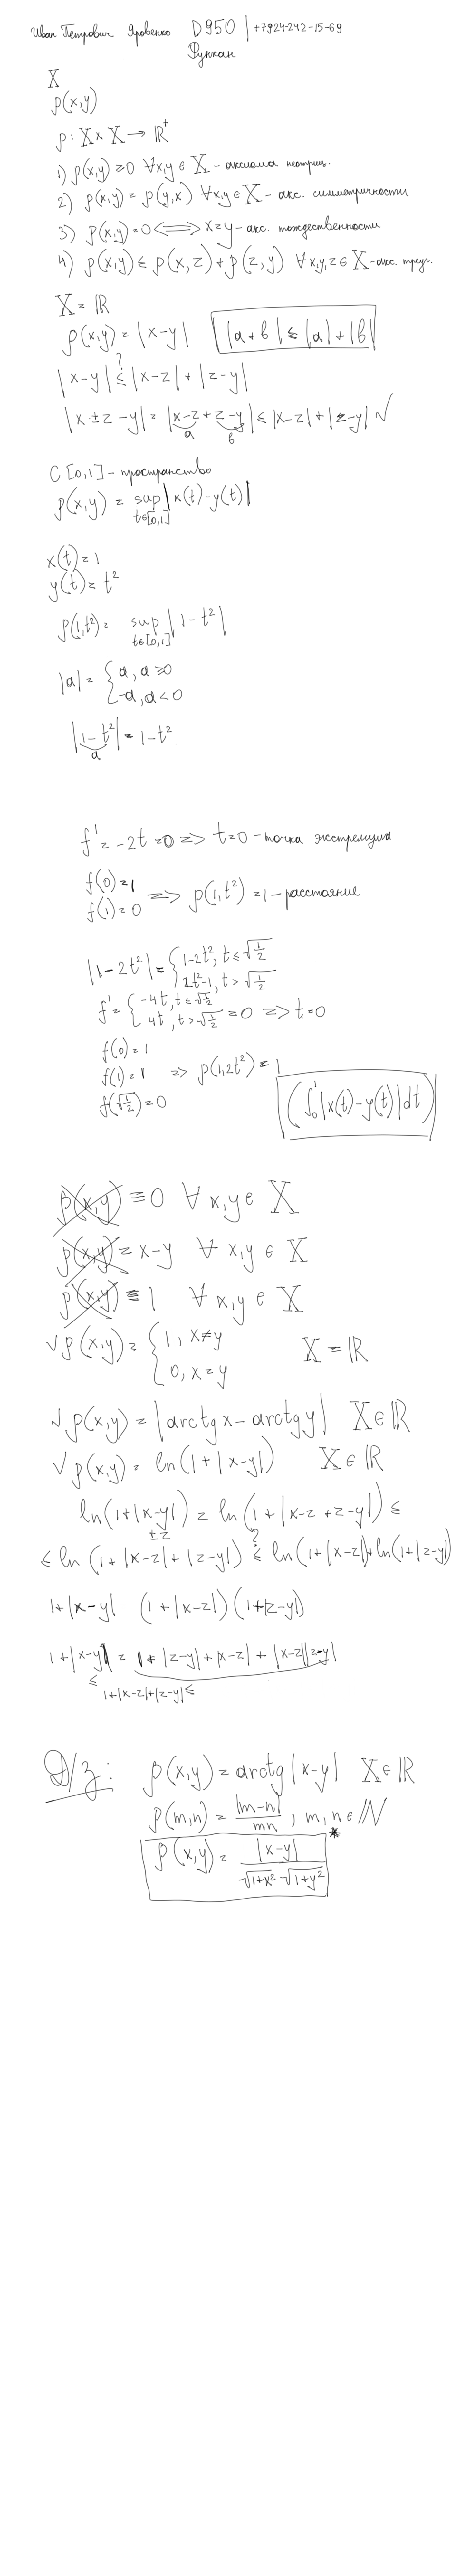 Иван Петрович Яровенко D950 | +7924-242-15-69
Функан
X
ρ(x,y)
ρ: X×X → ℝ⁺
1) ρ(x,y) ≥0 ∀x,y ∈ X - аксиома неотриц.
2) ρ(x,y) = ρ(y,x) ∀x,y ∈ X - акс. симметричности
3) ρ(x,y)=0 <=> x=y - акс. тождественности
4) ρ(x,y) ≤ ρ(x,z) + ρ(z,y) ∀x,y,z ∈ X - акс. треуг.
X = ℝ
ρ(x,y) = |x-y| |a+b| ≤ |a|+|b|
?
|x-y| ≤ |x-z| + |z-y|
|x±z-y| = |x-z+z-y| ≤ |x-z|+|z-y| √
a b
C[0,1] - пространство
ρ(x,y) = sup |x(t)-y(t)|
t∈[0,1]
x(t)=1
y(t)=t²
ρ(1,t²)= sup |1-t²|
t∈[0,1]
|a| = { a, a ≥0
-a, a<0
|1-t²| = 1-t²
a
f' = -2t =0 => t=0 - точка экстремума
f(0)=1
f(1)=0 => ρ(1,t²) =1 - расстояние
|1-2t²| = { 1-2t², t ≤ √1/2
2t²-1, t > √1/2
f' = { -4t, t ≤ √1/2
4t, t > √1/2 =0 => t=0
f(0)=1
f(1)=1 => ρ(1,2t²) = 1
f(√1/2)=0
(∫₀¹|x(t)-y(t)|dt)
ρ(x,y) ≡ 0 ∀ x,y ∈ X
ρ(x,y) = x-y ∀ x,y ∈ X
ρ(x,y) ≡ 1 ∀ x,y ∈ X
√ ρ(x,y) = { 1, x≠y X = ℝ
0, x=y
√ ρ(x,y) = |arctg x - arctg y| X∈ℝ
√ ρ(x,y) = ln(1+|x-y|) X∈ℝ
ln(1+|x-y|) = ln(1+|x-z+z-y|) ≤
±z ?
≤ ln(1+|x-z|+|z-y|) ≤ ln(1+|x-z|)+ln(1+|z-y|)
1+|x-y| (1+|x-z|)(1+|z-y|)
1+|x-y| = 1+|z-y|+|x-z|+|x-z||z-y|
≤
1+|x-z|+|z-y| ≤
Д/з: ρ(x,y) = arctg|x-y| X∈ℝ
ρ(m,n) = |m-n|/mn, m,n∈ℕ
ρ(x,y) = |x-y|/√1+x² √1+y² *